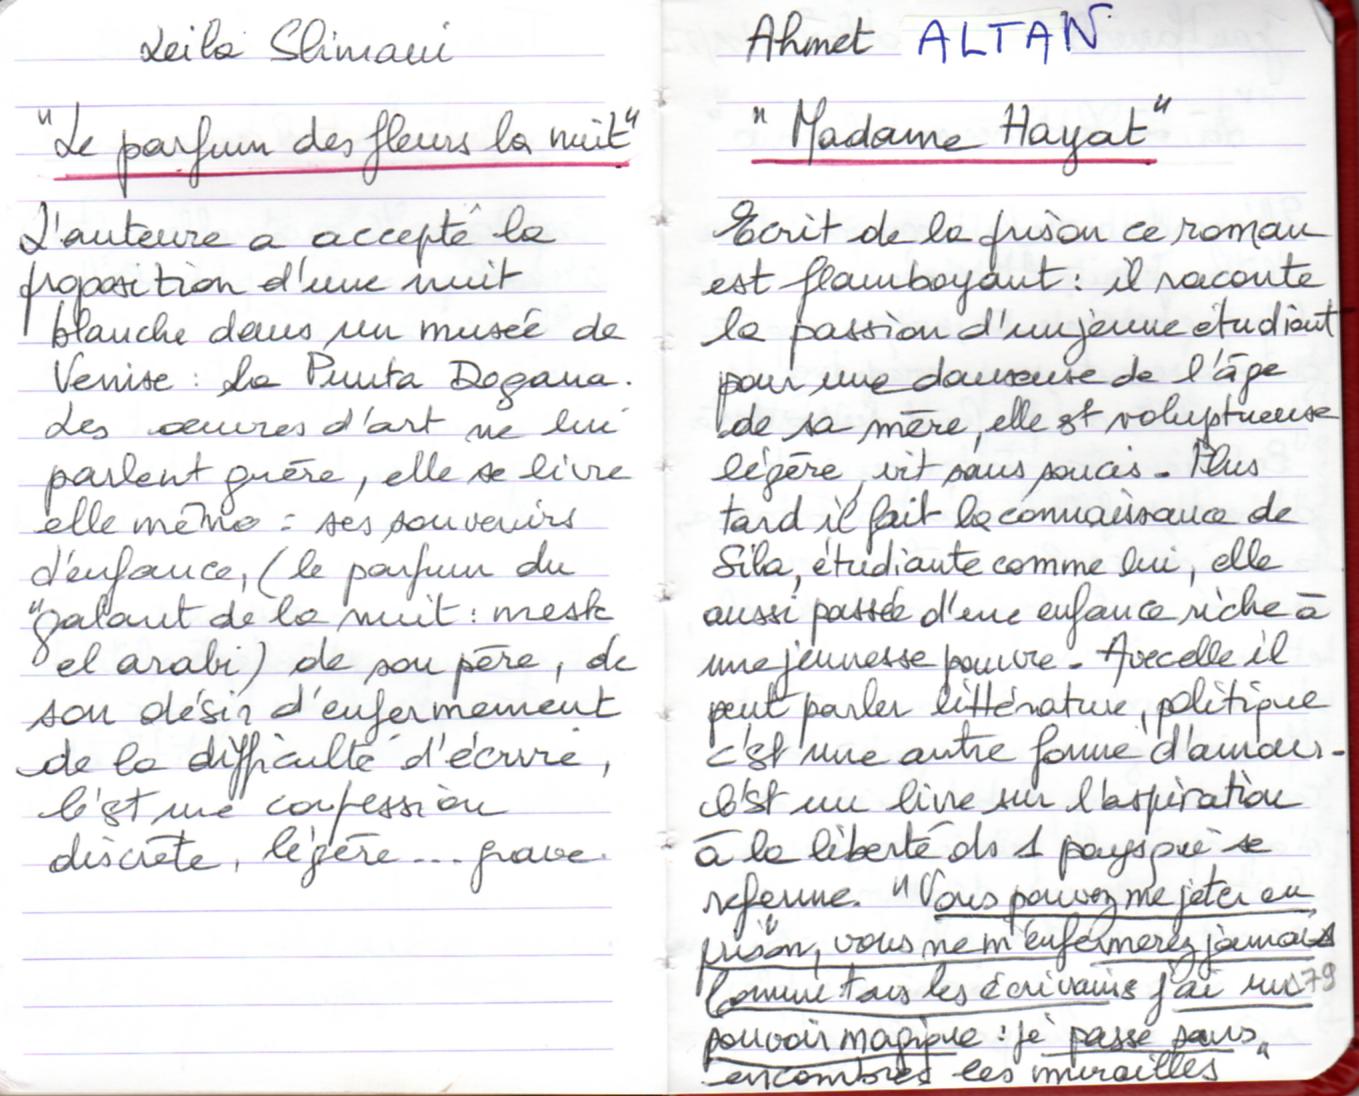 Leila Slimani
"Le parfum des fleurs la nuit"
L'auteure a accepté la
proposition d'une nuit
blanche dans un musée de
Venise : La Punta Dogana.
Les œuvres d'art ne lui
parlent guère, elle se livre
elle même : ses souvenirs
d'enfance, (le parfum du
"galant de la nuit : mesk
el arabi) de son père, de
son désir d'enfermement
de la difficulté d'écrire,
C'est une confession
discrète, légère... grave.
Ahmet ALTAN
"Madame Hayat"
Ecrit de la prison ce roman
est flamboyant : il raconte
la passion d'un jeune étudiant
pour une danseuse de l'âge
de sa mère, elle est voluptueuse
légère, vit sans soucis. Plus
tard il fait la connaissance de
Sila, étudiante comme lui, elle
aussi passée d'une enfance riche à
une jeunesse pauvre. Avec elle il
peut parler littérature, politique
c'est une autre forme d'amour.
C'est un livre sur l'aspiration
à la liberté ds 1 pays qui se
referme. "Vous pouvez me jeter en
prison", vous ne m'enfermerez jamais
Comme tous les écrivains j'ai un 79
pouvoir magique : je passe sans
encombres les murailles"